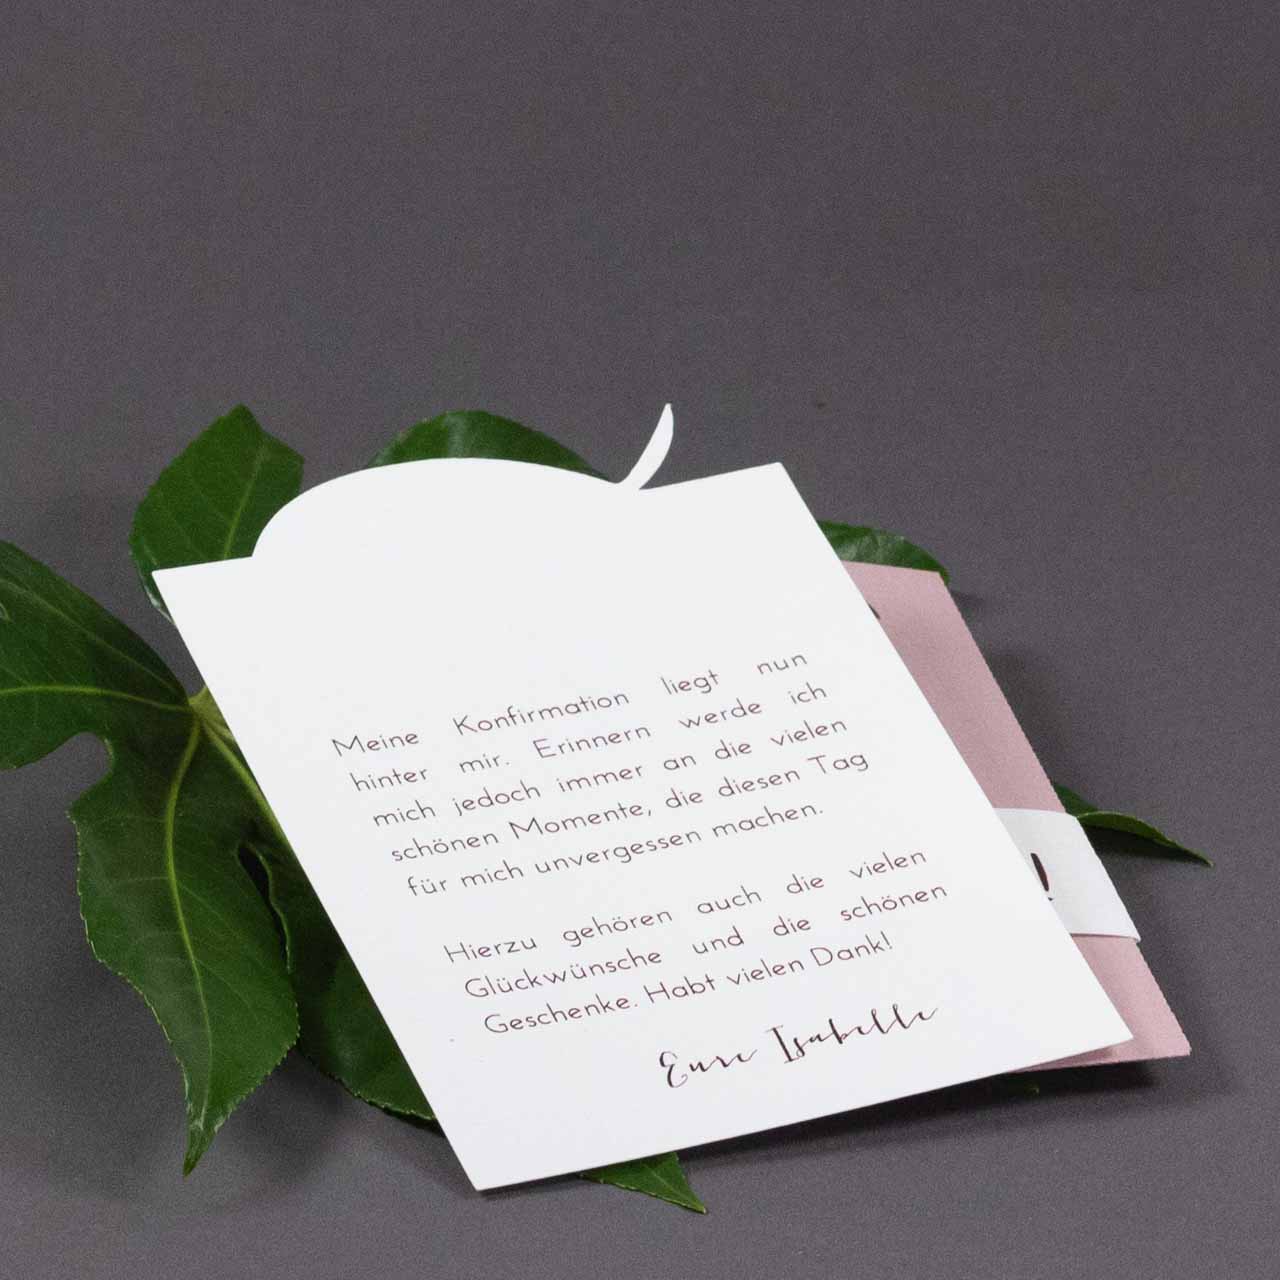 Meine Konfirmation liegt nun
hinter mir. Erinnern werde ich
mich jedoch immer an die vielen
schönen Momente, die diesen Tag
für mich unvergessen machen.
Hierzu gehören auch die vielen
Glückwünsche und die schönen
Geschenke. Habt vielen Dank!
Eure Isabelle